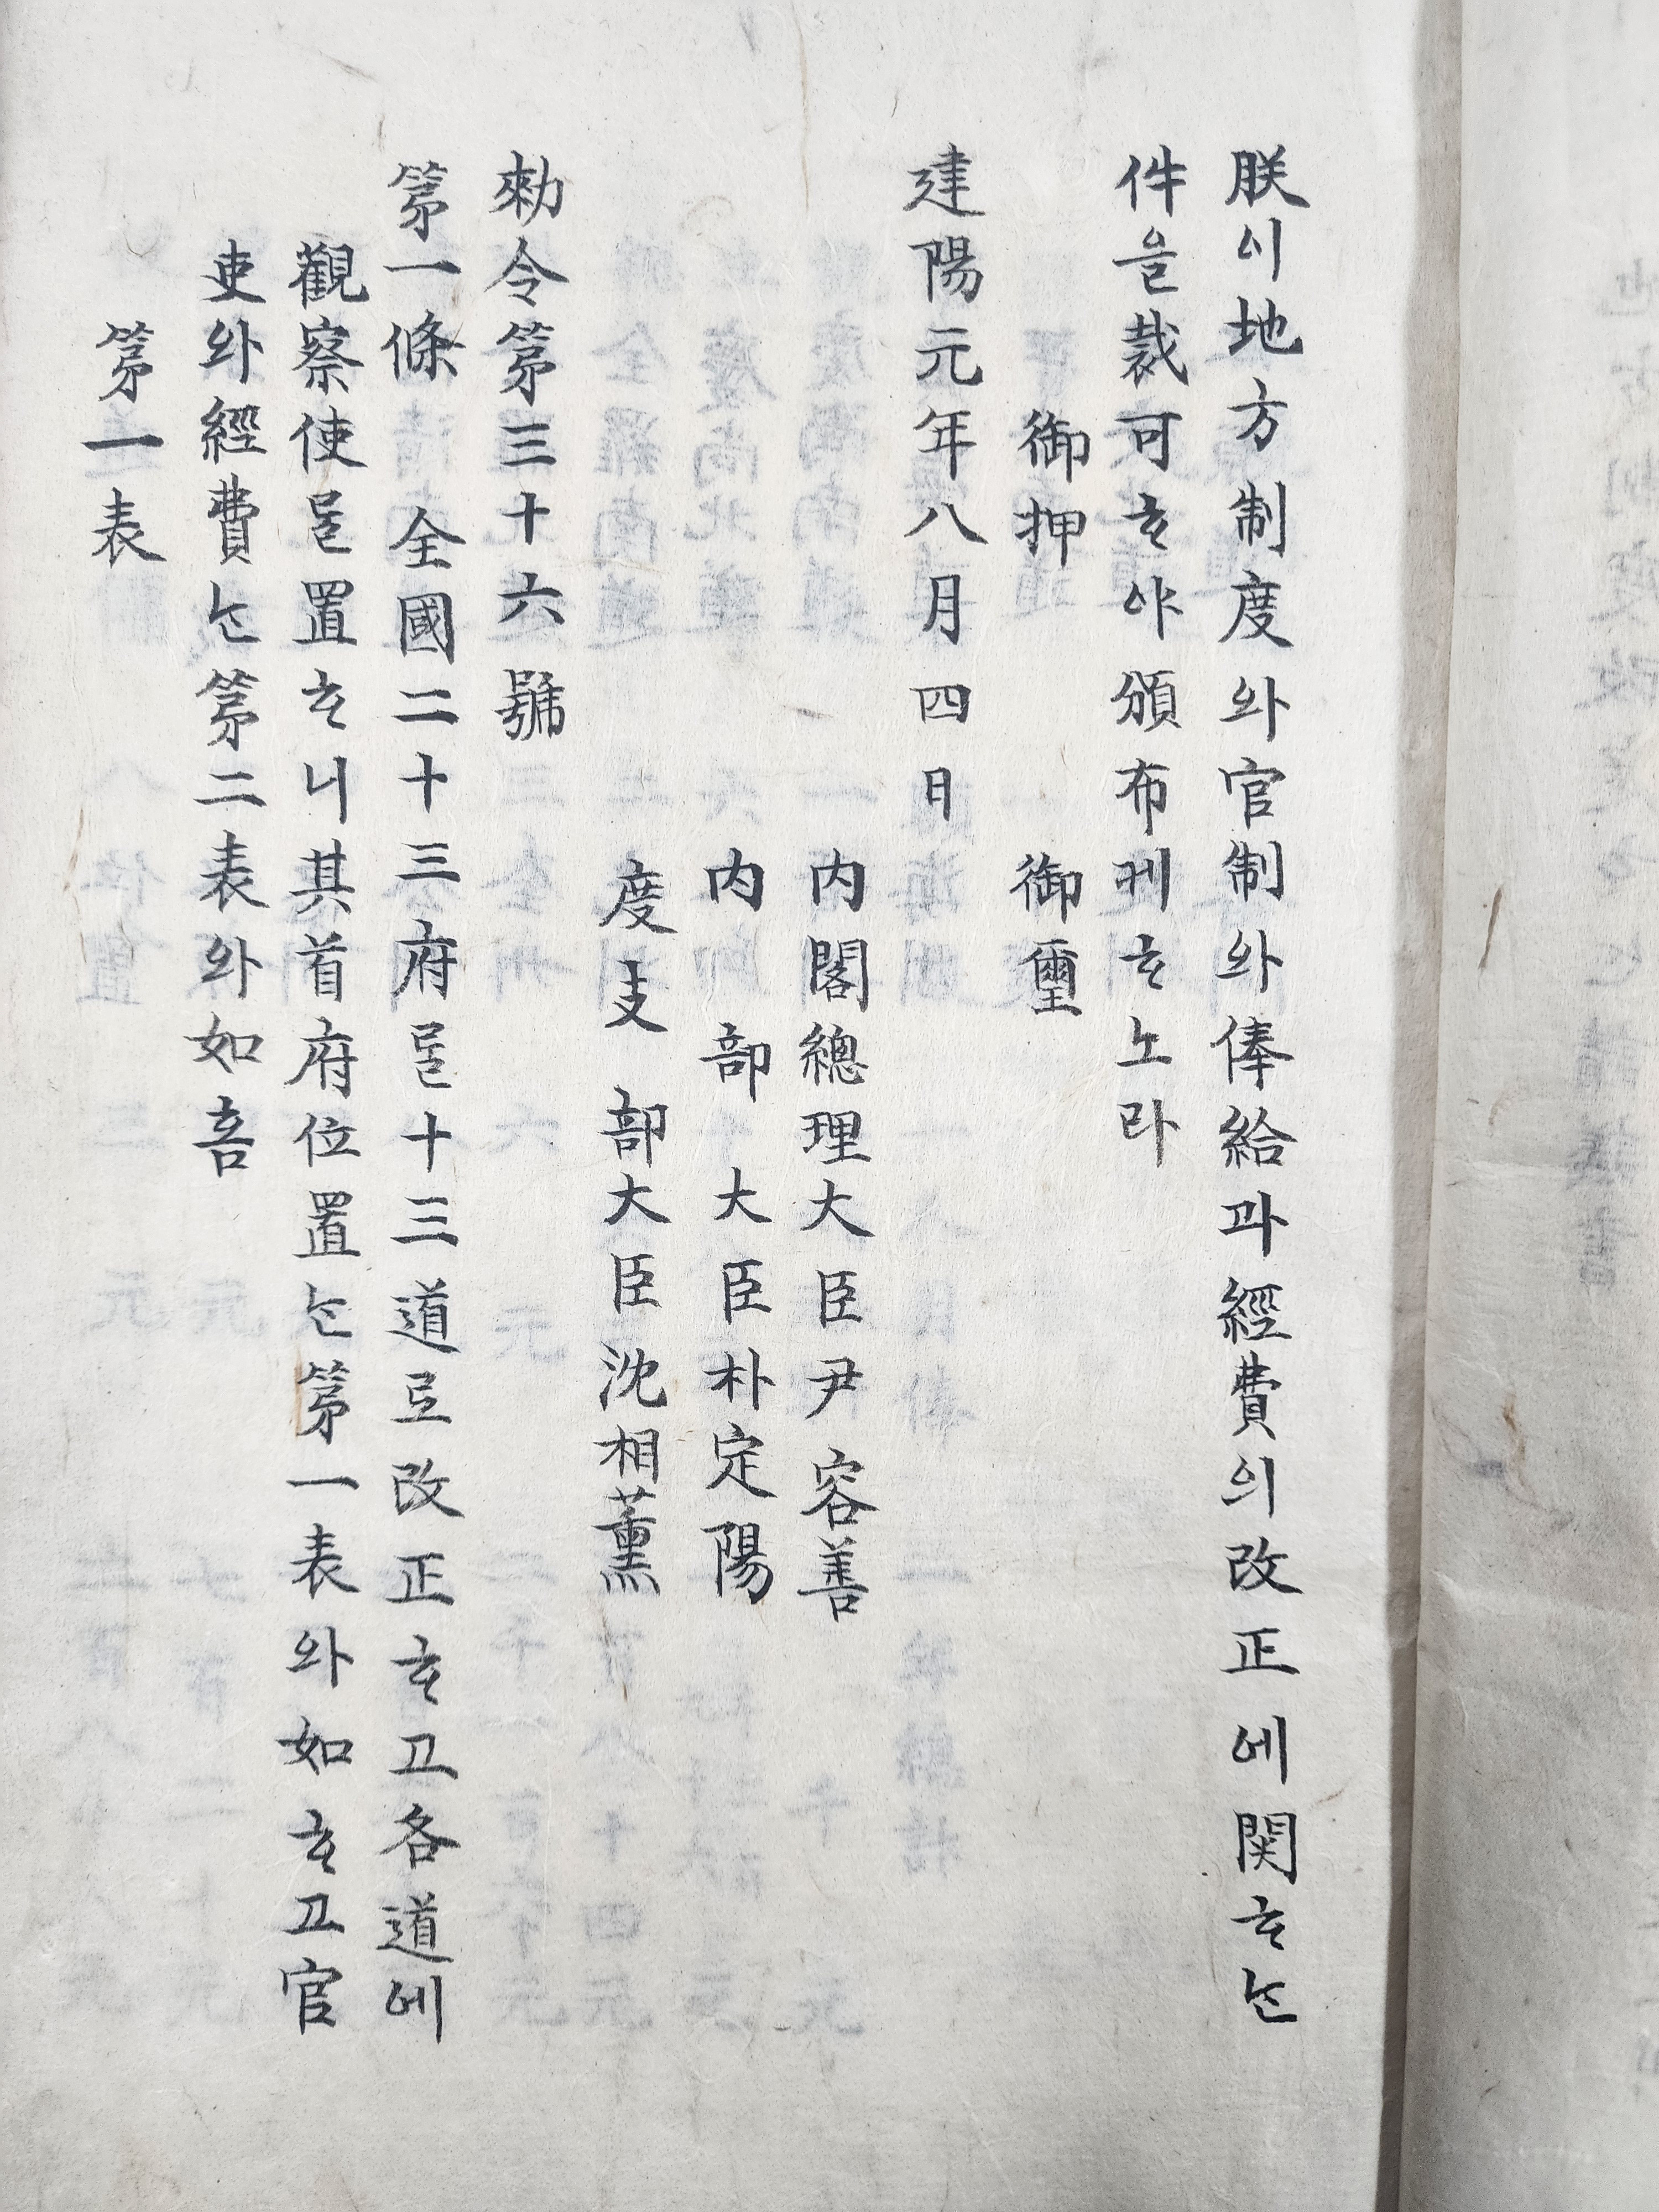 朕이地方制度와官制와俸給과經費의改正에関ᄒᆞᄂᆞᆫ
件을裁可ᄒᆞ야頒布케ᄒᆞ노라
御押 御璽
建陽元年八月四日
内閣總理大臣尹容善
内部大臣朴定陽
度支部大臣沈相薰
勅令第三十六號
第一條 全國二十三府ᄅᆞᆯ十三道로改正ᄒᆞ고各道에
觀察使ᄅᆞᆯ置ᄒᆞ니其首府位置ᄂᆞᆫ第一表와如ᄒᆞ고官
吏와經費ᄂᆞᆫ第二表와如흠
第一表